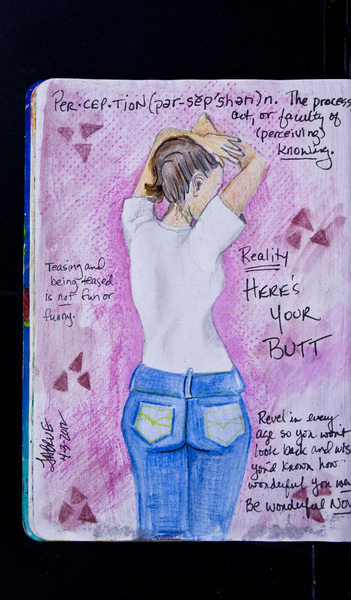 PER·CEP·TION (pər-sĕp'shən) n. The process
act, or faculty of
(perceiving)
Knowing.
Teasing and
being teased
is not fun or
funny.
Reality
HERE'S
YOUR
BUTT
Revel in every
age so you won't
look back and wis
you'd known how
wonderful you we
Be wonderful NOW
4-9-2012